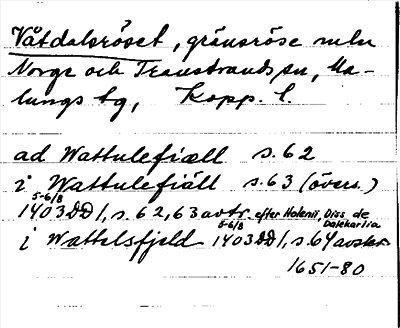 Våtdalsröset, gränsröse mln
Norge och Transtrands sn, Ma-
lungs tg, Kopp. l.
ad Wattulefiæll s. 62
i Wattulefiäll s. 63 (övers.)
5-6/8
1403 DD 1, s. 62, 63 avtr. efter Holenii, Diss de
Dalekarlia
5-6/8
i Wattelsfjeld 1403 DD 1, s. 64 avskr.
1651-80